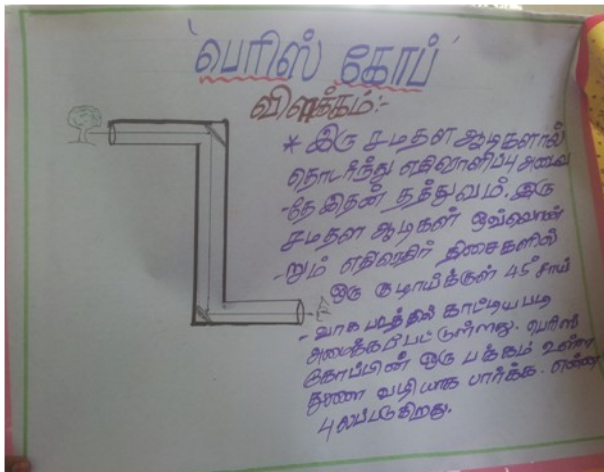 'பெரிஸ் கோப்'
விளக்கம்:-
* இரு சமதள ஆடிகளால்
தொடர்ந்து எதிரொளிப்பு அடைவ
-தே இதன் தத்துவம். இரு
சமதள ஆடிகள் ஒவ்வொன்
-றும் எதிரெதிர் திசைகளில்
ஒரு குழாய்க்குள் 45° சாய்
-வாக படத்தில் காட்டிய படி
அமைக்கப்பட்டுள்ளது. பெரிஸ்
கோப்பின் ஒரு பக்கம் உள்ள
வழியாக பார்க்க. என்ன
புலப்படுகிறது.